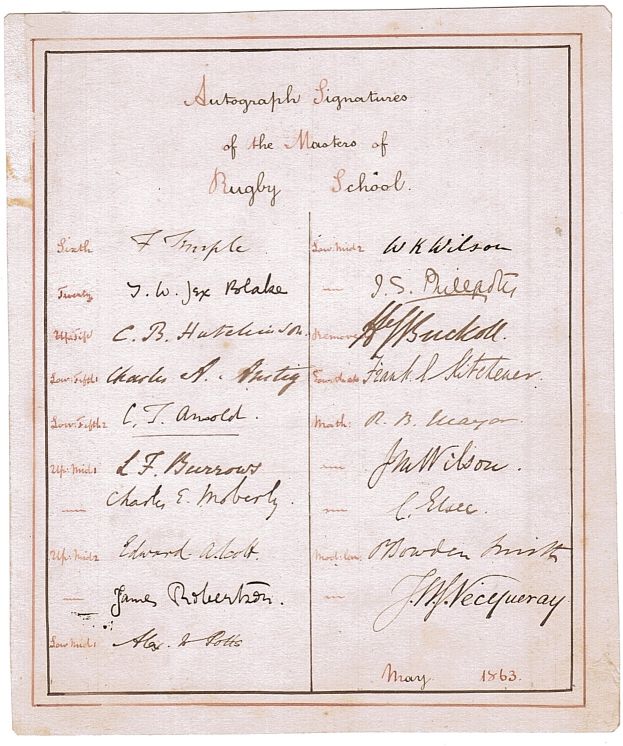 Autograph Signatures
of the Masters of
Rugby School.
Sixth F Temple
Twenty T. W. Jex Blake
Up: Fif C. B. Hutchinson.
Low: Fifth 1 Charles A.
Low: Fifth 2 C. T. Arnold.
Up: Mid 1 L F. Burrows
— Charles E. Moberly.
Up: Mid 2 Edward A.
— James Robertson.
Low Mid: 1 Alex. W Potts
Low: Mid 2 W K Wilson
— J. S. Phillpotts
Remove Buckoll.
Frank. E Kitchener.
Math: R. B. Mayor.
— J M Wilson.
— C. Elsee.
Mod: lan: Bowden Smith
— Vecqueray
May 1863.